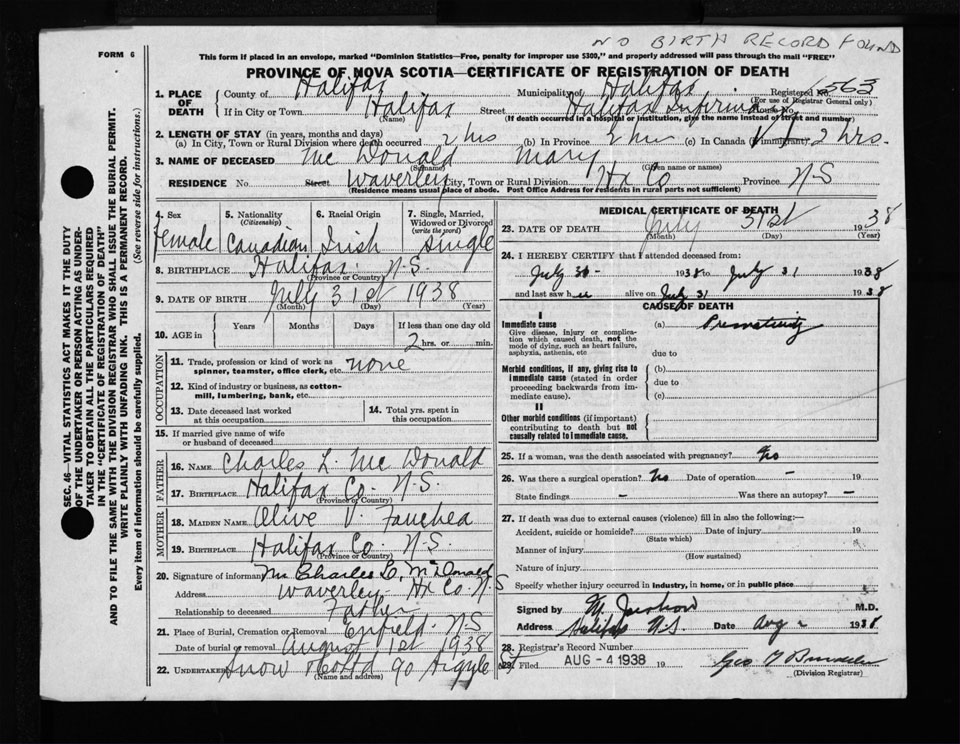 NO BIRTH RECORD FOUND
FORM 6
This form if placed in an envelope, marked "Dominion Statistics—Free, penalty for improper use $300," and properly addressed will pass through the mail "FREE"
PROVINCE OF NOVA SCOTIA—CERTIFICATE OF REGISTRATION OF DEATH
1. PLACE OF DEATH County of Halifax Municipality of Halifax Registered No. 563
(For use of Registrar General only)
If in City or Town Halifax Street Halifax Infirmary House No.
(Name) (If death occurred in a hospital or institution, give the name instead of street and number)
2. LENGTH OF STAY (in years, months and days)
(a) In City, Town or Rural Division where death occurred 2 hrs (b) In Province 2 hrs (c) In Canada (if immigrant) 2 hrs.
3. NAME OF DECEASED Mc Donald Mary
(Surname) (Given name or names)
RESIDENCE No. Street Waverley City, Town or Rural Division Hx Co Province N-S
(Residence means usual place of abode. Post Office Address for residents in rural parts not sufficient)
4. Sex female
5. Nationality (Citizenship) Canadian
6. Racial Origin Irish
7. Single, Married, Widowed or Divorced (write the word) single
8. BIRTHPLACE Halifax N.S.
(Province or Country)
9. DATE OF BIRTH July 31st 1938
(Month) (Day) (Year)
10. AGE in Years Months Days If less than one day old
2 hrs. or min.
OCCUPATION
11. Trade, profession or kind of work as spinner, teamster, office clerk, etc. none
12. Kind of industry or business, as cotton-mill, lumbering, bank, etc.
13. Date deceased last worked at this occupation
14. Total yrs. spent in this occupation
15. If married give name of wife or husband of deceased
FATHER
16. NAME Charles L. Mc Donald
17. BIRTHPLACE Halifax Co. N.S.
(Province or Country)
MOTHER
18. MAIDEN NAME Olive V.
19. BIRTHPLACE Halifax Co. N-S.
(Province or Country)
20. Signature of informant Mr Charles L. McDonald
Address Waverley Hx Co. N S
Relationship to deceased Father
21. Place of Burial, Cremation or Removal Enfield N-S
Date of burial or removal August 1st 1938
22. UNDERTAKER Snow 90 Argyle St
(Name and address)
MEDICAL CERTIFICATE OF DEATH
23. DATE OF DEATH July 31st 1938
(Month) (Day) (Year)
24. I HEREBY CERTIFY that I attended deceased from:
July 31 1938 to July 31 1938
and last saw her alive on July 31 1938
CAUSE OF DEATH
I
Immediate cause (a) Prematurity
Give disease, injury or complication which caused death, not the mode of dying, such as heart failure, asphyxia, asthenia, etc
due to
Morbid conditions, if any, giving rise to immediate cause (stated in order proceeding backwards from immediate cause).
(b)
due to
(c)
II
Other morbid conditions (if important) contributing to death but not causally related to immediate cause.
25. If a woman, was the death associated with pregnancy?
26. Was there a surgical operation? No Date of operation -
State findings - Was there an autopsy? -
27. If death was due to external causes (violence) fill in also the following:—
Accident, suicide or homicide? Date of injury 19
(State which)
Manner of injury
(How sustained)
Nature of injury
Specify whether injury occurred in industry, in home, or in public place
Signed by M. M.D.
Address Halifax N.S. Date Aug 2 1938
28. Registrar's Record Number
29. Filed AUG - 4 1938 19 Geo
(Division Registrar)
SEC. 46—VITAL STATISTICS ACT MAKES IT THE DUTY
OF THE UNDERTAKER OR PERSON ACTING AS UNDER-
TAKER TO OBTAIN ALL THE PARTICULARS REQUIRED
IN THE "CERTIFICATE OF REGISTRATION OF DEATH"
AND TO FILE THE SAME WITH THE DIVISION REGISTRAR WHO SHALL ISSUE THE BURIAL PERMIT.
WRITE PLAINLY WITH UNFADING INK. THIS IS A PERMANENT RECORD.
Every item of information should be carefully supplied. (See reverse side for instructions.)